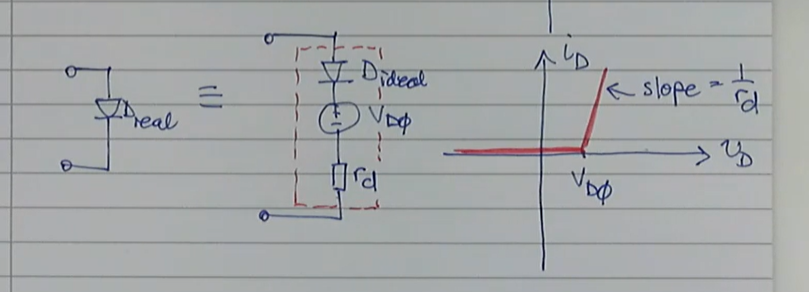 D real
≡
D ideal
V D∅
rd
i D
slope = 1/rd
v D
V D∅